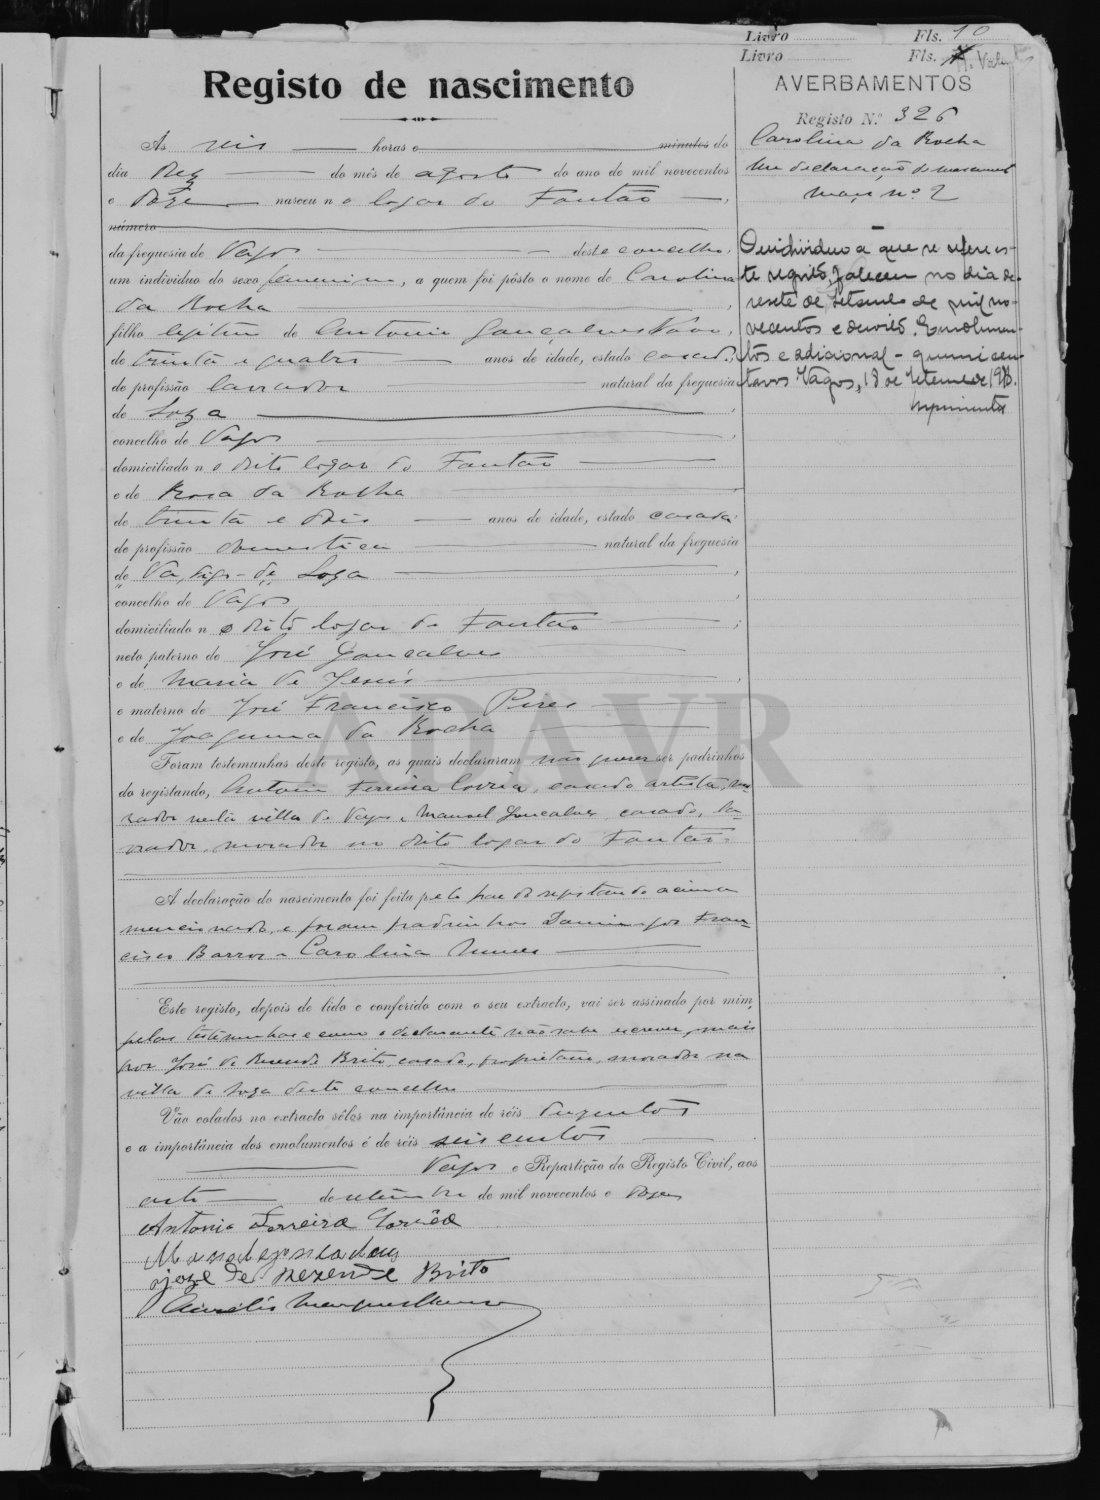 Livro Fls. 10
Livro Fls.
Registo de nascimento
AVERBAMENTOS
Registo N.º 326
Carolina da Rocha
declaração de
maço nº 2
O individuo a que se refere es-
te registo, faleceu no dia de-
resete de Setembro de mil no-
vecentos e dezoito. Emolumen-
tos e adicional - quinze cen-
tavos. Vagos, 18 de Setembro de 1918.
Às seis horas e minutos do
dia dez do mês de agosto do ano de mil novecentos
e doze nasceu no logar do Fontão,
número
da freguesia de Vagos deste concelho,
um individuo do sexo femenino, a quem foi pôsto o nome de Carolina
da Rocha,
filho legitimo de Antonio Gonçalves,
de trinta e quatro anos de idade, estado casado,
de profissão lavrador natural da freguesia
de Soza,
concelho de Vagos,
domiciliado no dito logar do Fontão
e de Rosa da Rocha,
de trinta e dois anos de idade, estado casada,
de profissão domestica natural da freguesia
de Vagos, digo - de Soza,
concelho de Vagos,
domiciliado no dito logar do Fontão;
neto paterno de José Gonçalves
e de Maria de Jesus,
e materno de José Francisco Pires
e de Joaquina da Rocha
Foram testemunhas deste registo, as quais declararam não querer ser padrinhos
do registando, Antonio Ferreira, casado, artista, mo-
rador nesta villa de Vagos e Manuel Gonçalves, casado, la-
vrador, morador no dito logar do Fontão.
A declaração do nascimento foi feita pelo pae do registando acima
mencionado, e foram padrinhos Domingos Fran-
cisco Barros e Carolina Nunes
Este registo, depois de lido e conferido com o seu extracto, vai ser assinado por mim,
pelas testemunhas e como o declarante não sabe escrever, mais
por José de Rezende Brito, casado, proprietario, morador na
villa de Soza deste concelho
Vão colados no extracto sêlos na importância de réis duzentos
e a importância dos emolumentos é de réis seiscentos
Vagos e Repartição do Registo Civil, aos
oito de setembro de mil novecentos e doze
Antonio Ferreira
Manoel Gonsalves
joze de Rezende Brito
ADAVR